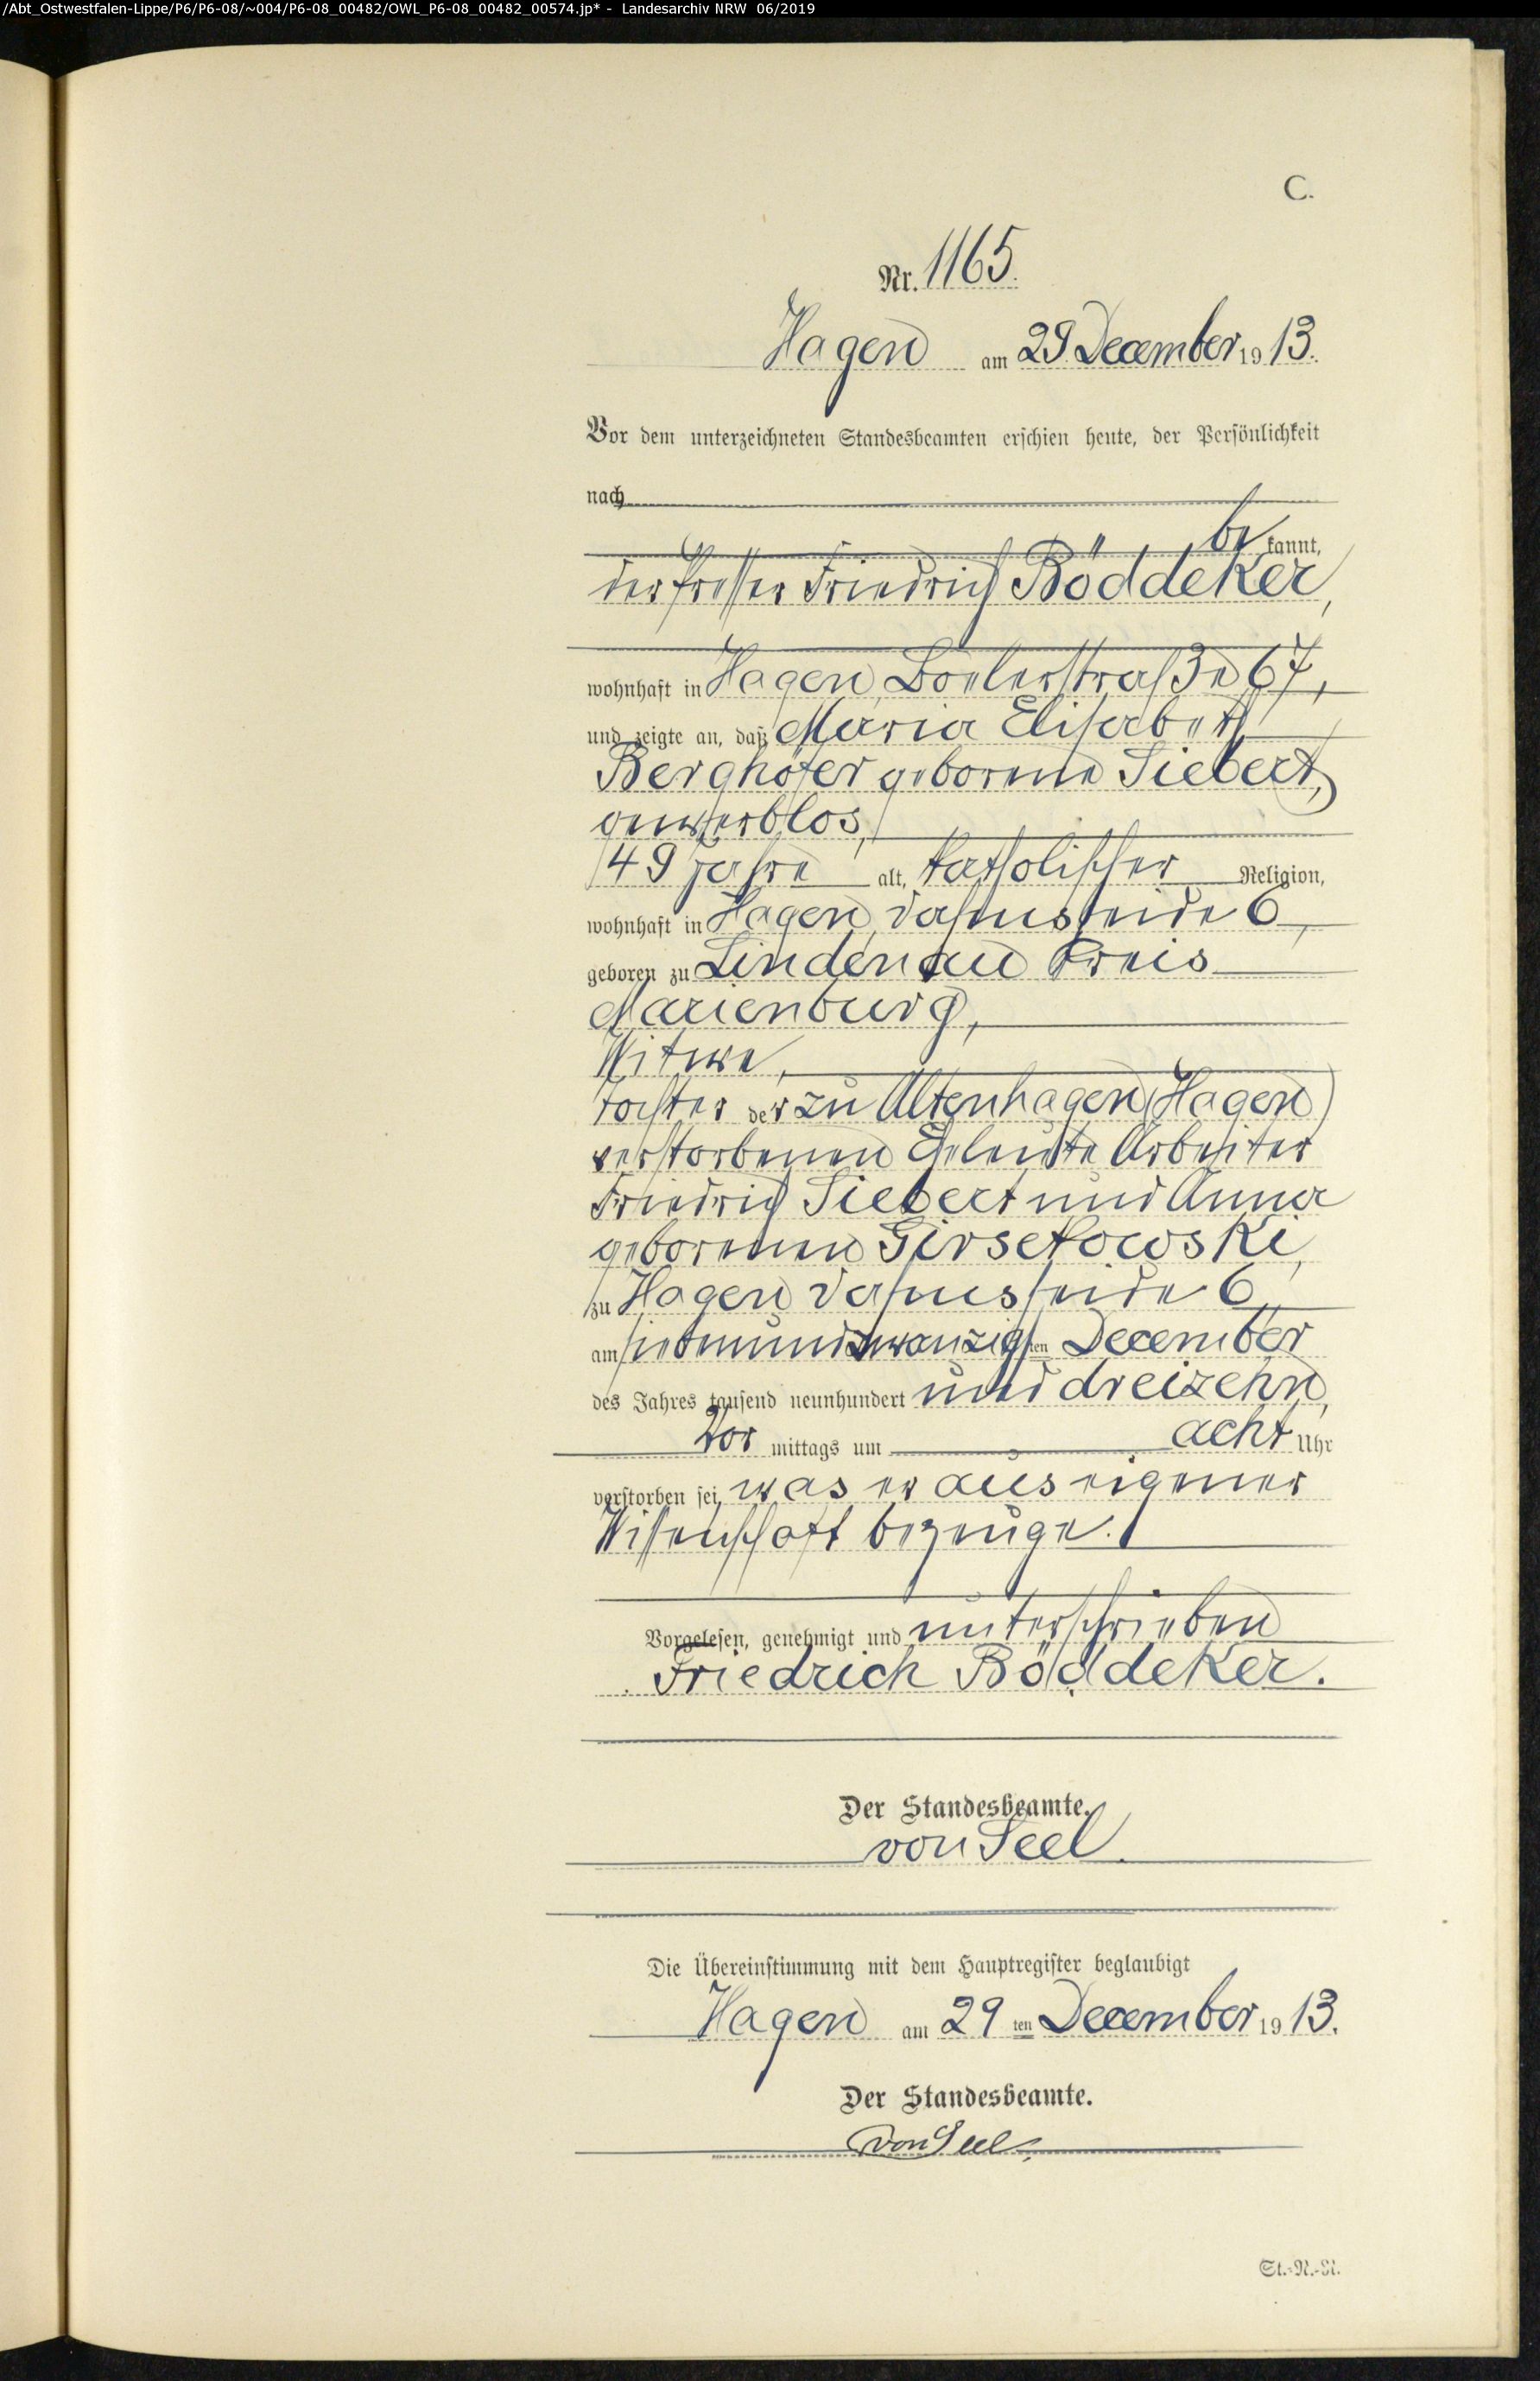 /Abt_Ostwestfalen-Lippe/P6/P6-08/~004/P6-08_00482/OWL_P6-08_00482_00574.jp* - Landesarchiv NRW 06/2019
C.
Nr. 1165.
Hagen am 29. December 1913.
Vor dem unterzeichneten Standesbeamten erschien heute, der Persönlichkeit
nach
be kannt,
der Presser Friedrich Böddeker,
wohnhaft in Hagen, Boelerstraße 67,
und zeigte an, daß Maria Elisabeth
Berghöfer geborene Siebert,
gewerblos,
49 Jahre alt, katholischer Religion,
wohnhaft in Hagen, Dahmsheide 6,
geboren zu Lindenau Kreis
Marienburg,
Witwe,
Tochter der zu Altenhagen (Hagen)
verstorbenen Eheleute Arbeiter
Friedrich Siebert und Anna
geborenen Girsetowski,
zu Hagen Dahmsheide 6,
am siebenundzwanzigsten December
des Jahres tausend neunhundert und dreizehn,
Vor mittags um acht Uhr
verstorben sei, was er aus eigener
Wissenschaft bezeuge.
Vorgelesen, genehmigt und unterschrieben
Friedrich Böddeker.
Der Standesbeamte.
von Seel.
Die Übereinstimmung mit dem Hauptregister beglaubigt
Hagen am 29 ten December 1913.
Der Standesbeamte.
von Seel.
St.-R.-A.